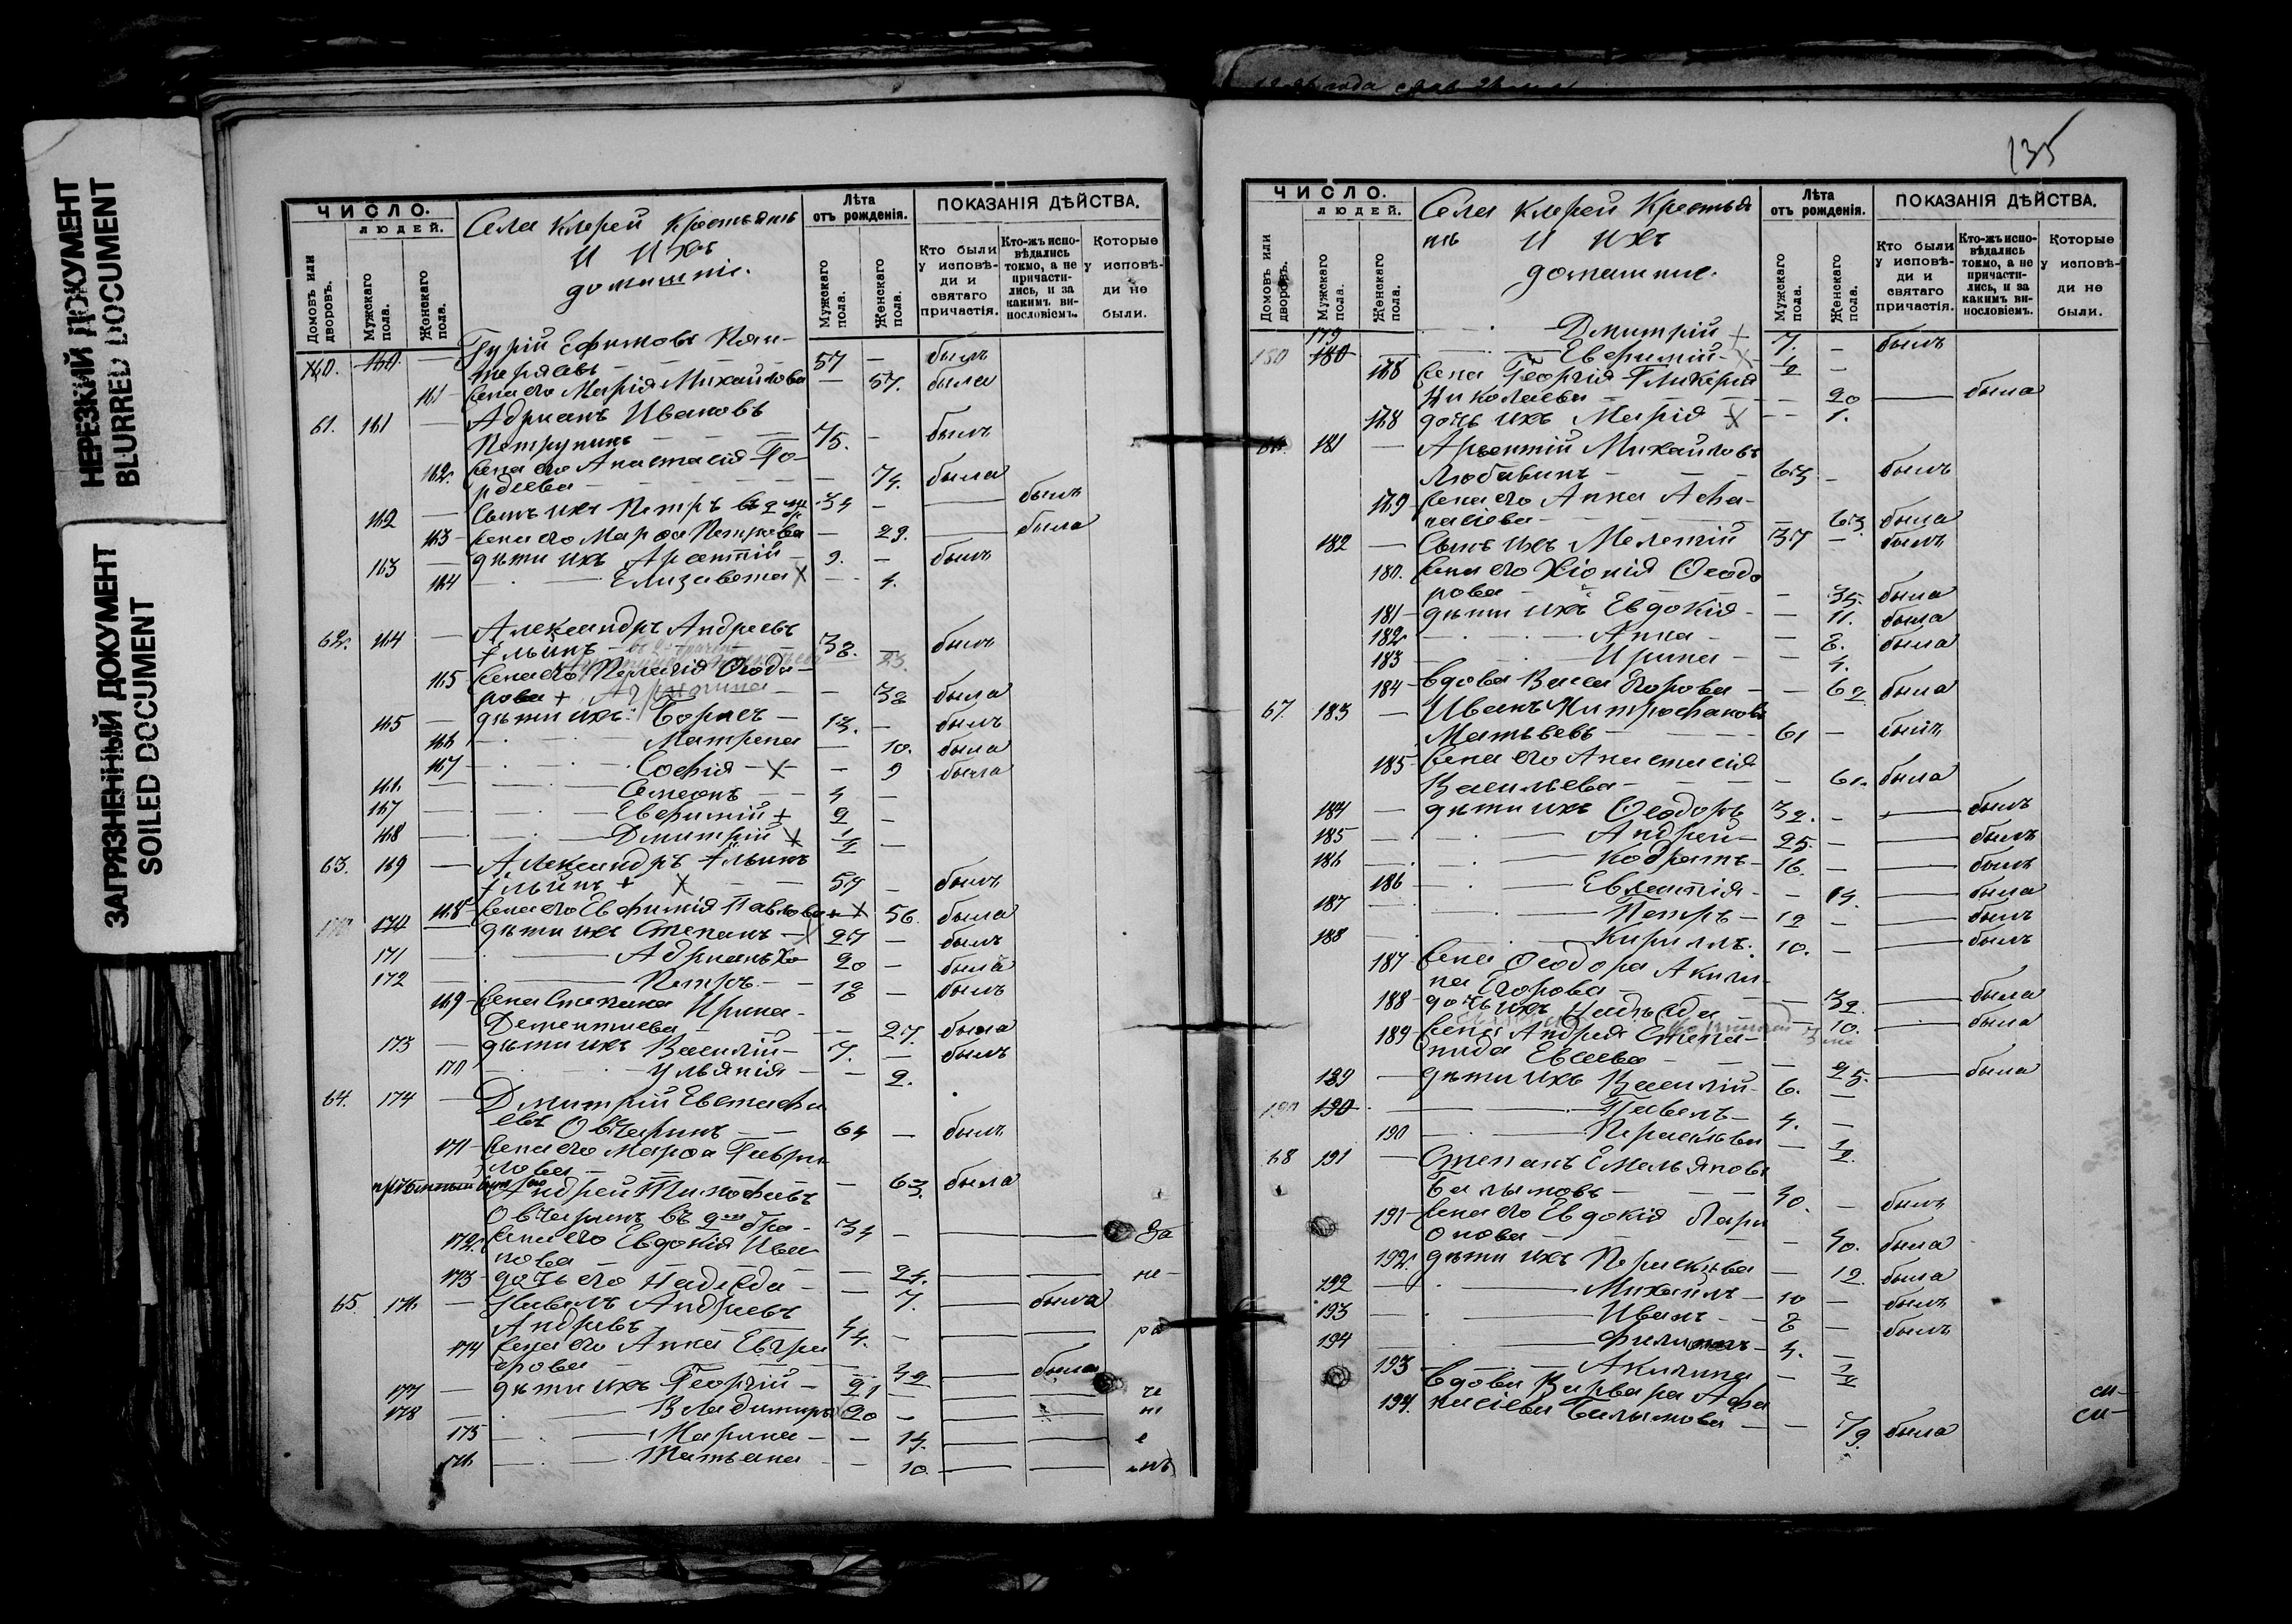 НЕРЕЗКИЙ ДОКУМЕНТ
BLURRED DOCUMENT
ЗАГРЯЗНЕННЫЙ ДОКУМЕНТ
SOILED DOCUMENT
ЧИСЛО.
ЛЮДЕЙ.
Домовъ или дворовъ.
Мужскаго пола.
Женскаго пола.
Села Клерей Крестьянъ
и ихъ
домашніе.
Лѣта
отъ рожденія.
Мужскаго пола.
Женскаго пола.
ПОКАЗАНІЯ ДѢЙСТВА.
Кто были у исповѣди и святаго причастія.
Кто-жъ исповѣдались токмо, а не причастились, и за какимъ винословіемъ.
Которые у исповѣди не были.
160. Гурій Ефимовъ
57 — былъ
161 — жена его Марія Михайлова — 57. была
61. 161 — Адрианъ Ивановъ
Петрунинъ — 75. — былъ
162. жена его Анастасія Го-
рдеева — 74. была
162 — сынъ ихъ Петръ въ 2 34 — былъ
163 — жена его Марѳа Петрова — 29. — была
163 — дѣти ихъ 9. — былъ
164 — Елизавета X — 4.
62. 164 — Александръ Андреевъ
Ильинъ — 38. — былъ
165 жена его Пелагія Ѳеодо-
рова + — 38 была
165 — дѣти ихъ: Борисъ — 13. — былъ
166 — Матрена — 10. была
167 — Софія — X — 9 была
166. — Симеонъ — 4 —
167 — Евфимій + 2 —
168 — Дмитрій X 1/2 —
63. 169 — Александръ Ильинъ
Ильинъ + X 57 — былъ
168 — жена его Евфимія Павлова + X 56. была
170 — дѣти ихъ Степанъ — 27 — былъ
171 — Адрианъ 20 — былъ
172 — Петръ — 18 — былъ
169 — жена Степана Ирина
Дементиева — 27. была
173 — дѣти ихъ Василій — 7. — былъ
170 — Ульянія — 2.
64. 174 — Дмитрій Евстафи
евъ Овчаринъ — 64 — былъ
171 — жена его Марѳа Гаври
лова — 63. была
Андрей Тимофѣевъ
Овчаринъ въ 2мъ бра. 34 — За
172. жена его Евдокія Ива
нова — 24. — не
173 — дочь его Надежда — 7. — была
65. 176. — Павелъ Андреевъ
Андреевъ — 44. — ра
174 жена его Анна
42 — была
177 — дѣти ихъ Георгій — 21
178 — Владимиръ 20 —
175 — Марина — 14.
176. — Татьяна — 10.
135
ЧИСЛО.
ЛЮДЕЙ.
Домовъ или дворовъ.
Мужскаго пола.
Женскаго пола.
Села Клерей Крестья
нъ и ихъ
домашние.
Лѣта
отъ рожденія.
Мужскаго пола.
Женскаго пола.
ПОКАЗАНІЯ ДѢЙСТВА.
Кто были у исповѣди и святаго причастія.
Кто-жъ исповѣдались токмо, а не причастились, и за какимъ винословіемъ.
Которые у исповѣди не были.
179 — Дмитрій + 7. — былъ
180 180 — Евфимій — X 1/2 —
жена Георгія Гликерія
Николаева — 20 — была
178 дочь ихъ Марія X — 1.
181 — Арсентій Михайловъ
Любавинъ — 63 — былъ
179 жена его Анна Афа-
насіева — 63 была
182 — сынъ ихъ Мелетій 37 — былъ
180. жена его Хіонія Ѳеодо
рова — 35. была
181 — дѣти ихъ Евдокія — 11. была
182 — Анна — 8. была
183 — Ирина — 4.
184 — вдова Васса Егорова — 62 была
67. 183 — Иванъ Митрофановъ
Матвѣевъ — 61 — былъ
185 жена его Анастасія
Васильева — 61. была
184 — дѣти ихъ Ѳеодоръ 32. — былъ
185 — Андрей — 25. — былъ
186 — Кодратъ — 16. — былъ
186 — 14. — была
187 — Петръ — 12 — былъ
188 — Кириллъ. 10. — былъ
187 жена Ѳеодора Акили
на Егорова — 32. — была
188 — дочь ихъ Надежда — 10. — была
189 жена Андрея Степа-
нида Евсеева — 25. — была
189 — дѣти ихъ Василій — 6. —
190 190 — Павелъ — 4. —
190 — Параскева — 1/2
68 191 — Степанъ Емельяновъ
Балымовъ — 40. — былъ
191 — жена его Евдокія Лари
онова — 40. была
192. дѣти ихъ Параскева — 12. была
192 — Михаилъ — 10 — былъ
193 — Иванъ — 8 — былъ
194 — Филиппъ — 4. —
193 — Акилина — 1/2
194. вдова Варвара Афа
насіева Балымова — 79. была